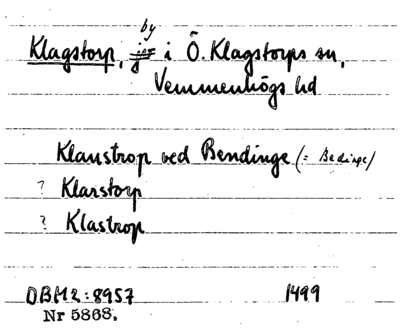 by
Klagstorp, i Ö. Klagstorps sn,
Vemmenhögs hd
Klaustrop ved Bendinge (= Bedinge)
? Klarstorp
? Klastrop
DBM2:8957 1499
Nr 5868.